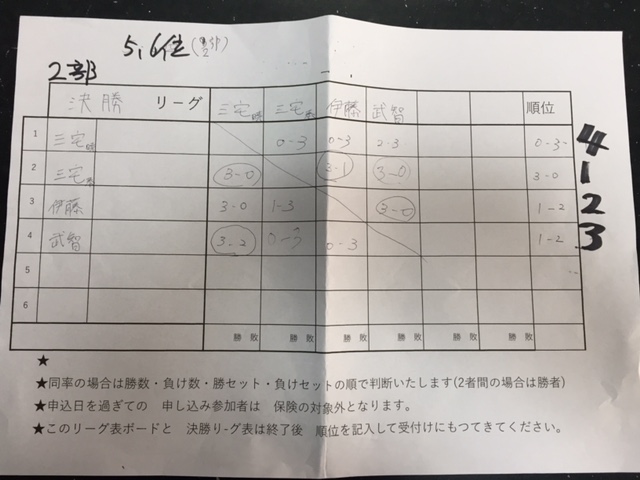 5,6位
2部
決勝 リーグ 三宅 三宅 伊藤 武智 順位
1 三宅 0-3 0-3 2-3 0-3 4
2 三宅 3-0 3-1 3-0 3-0 1
3 伊藤 3-0 1-3 3-0 1-2 2
4 武智 3-2 0-3 0-3 1-2 3
5
6
勝 敗 勝 敗 勝 敗 勝 敗 勝 敗 勝 敗
★
★同率の場合は勝数・負け数・勝セット・負けセットの順で判断いたします(2者間の場合は勝者)
★申込日を過ぎての 申し込み参加者は 保険の対象外となります。
★このリーグ表ボードと 決勝り-グ表は終了後 順位を記入して受付けにもつてきてください。